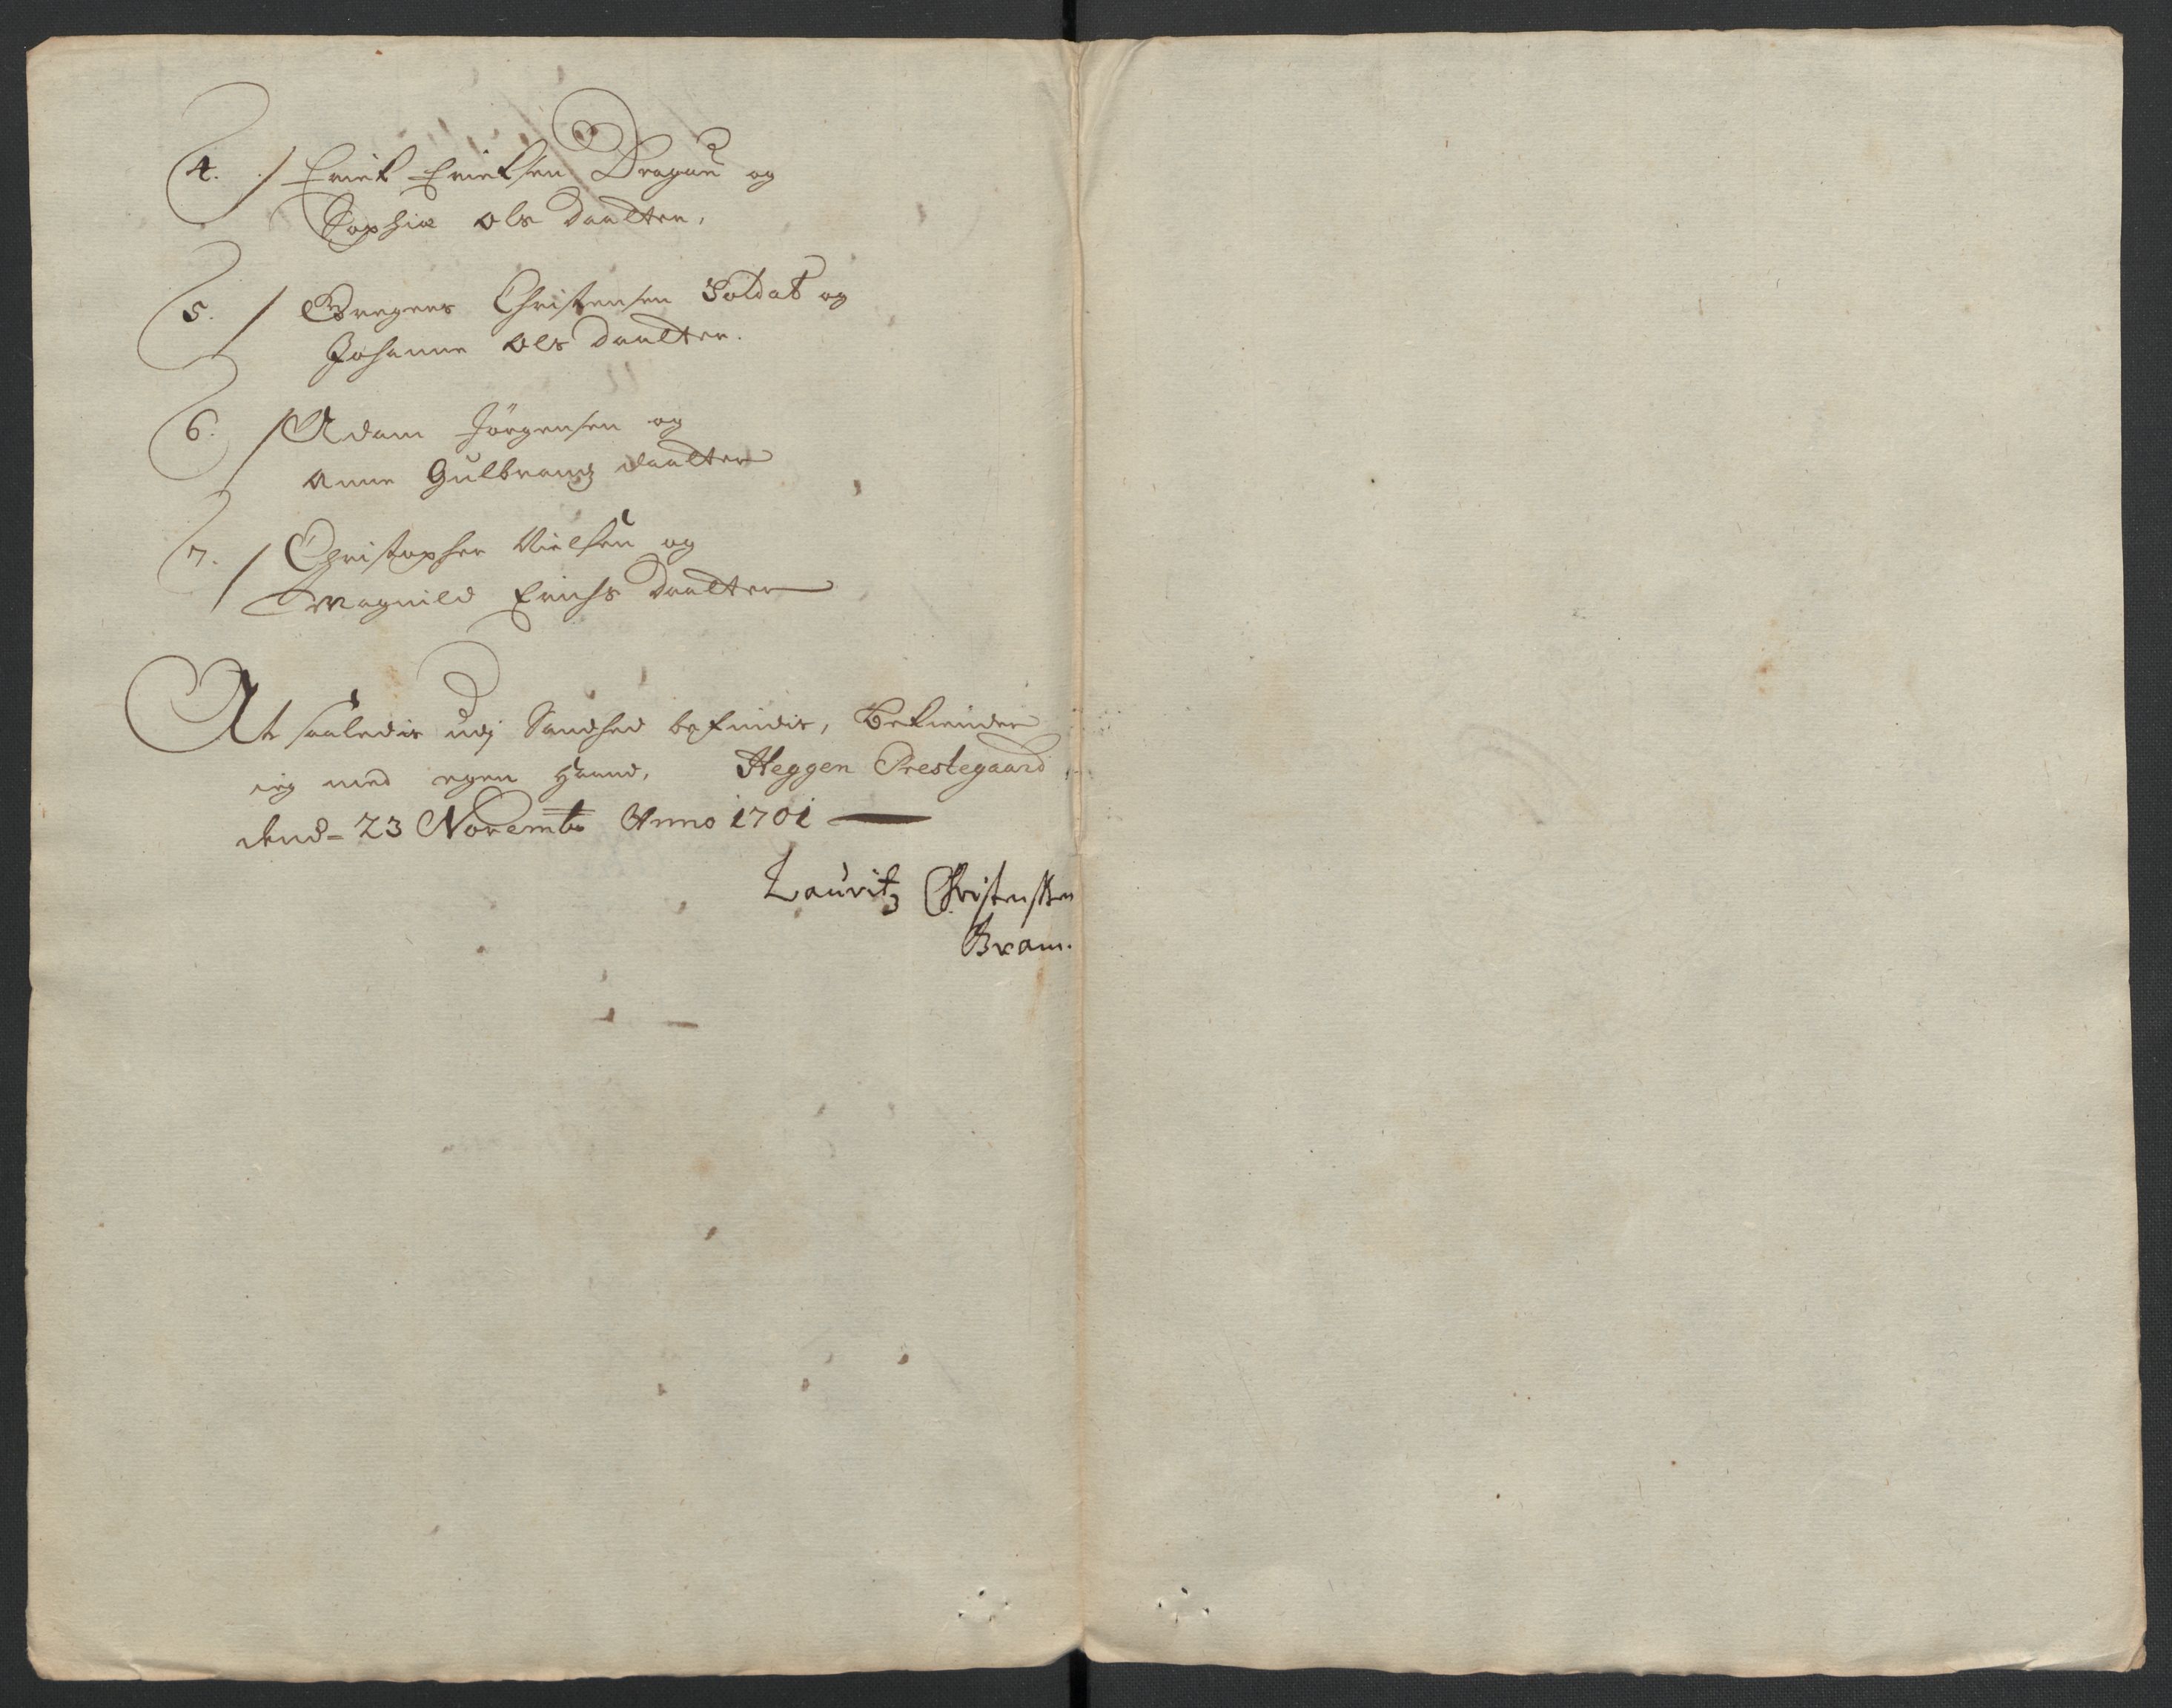 4. / Erick Ericksen Dragun og
Sophie Ols daatter,
5. / Gregers Christensen Soldat og
Johanne Ols daatter.
6. / Adam Jörgensen og
Anne Gulbrands daatter
7. / Christopher Nielsen og
Magnild Erichs daatter
At saaledis udj Sandhed befindis, bekiender
ieg med egen Haand, Heggen Prestegaard
dend= 23 Novembr Anno 1701
Lauritz Christenssen
Bram.